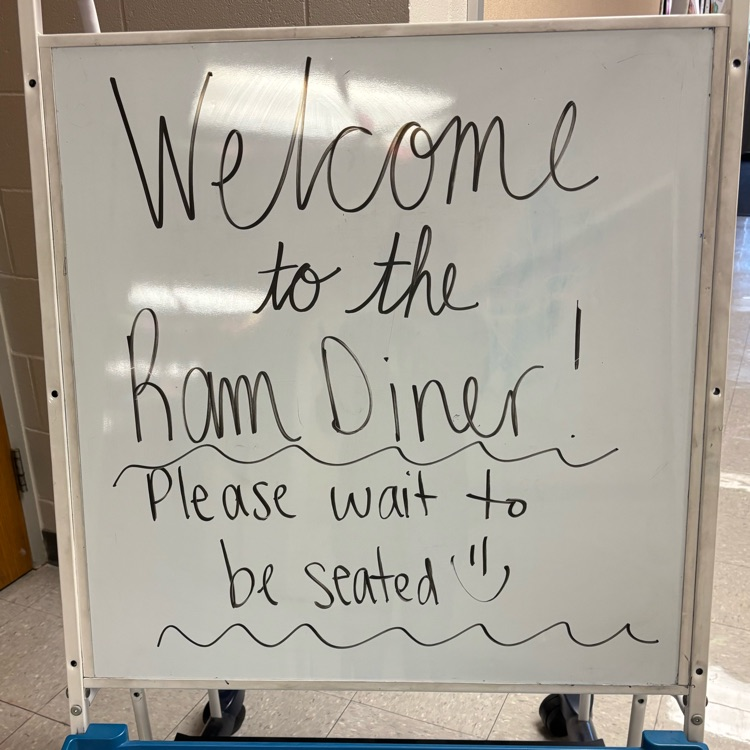 Welcome
to the
Ram Diner!
Please wait to
be seated